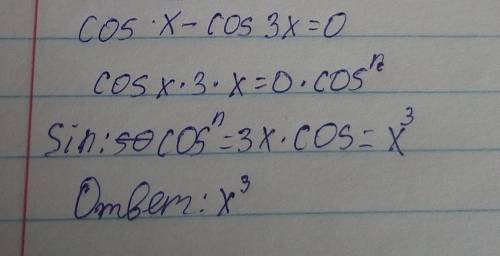 cos · x - cos 3x = 0
cos x · 3 · x = 0 · cosⁿ
Sin: cosⁿ = 3x · cos = x³
Ответ: x³